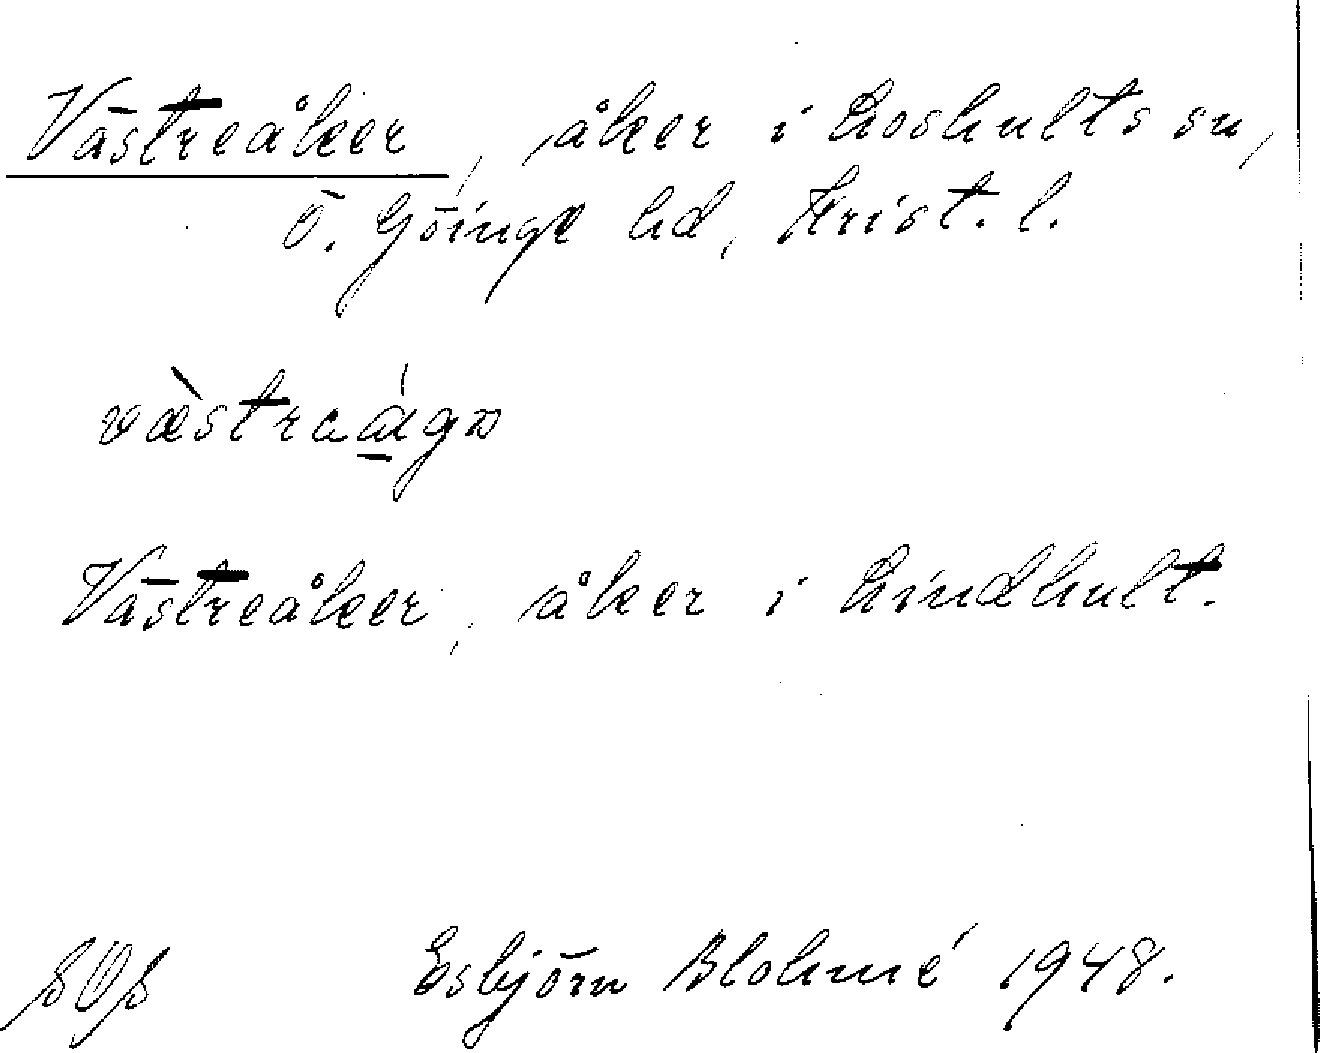 Västreåker, åker i Loshults sn,
Ö. Göinge hd, Krist. l.
væstraágɔ
Västreåker, åker i Lindhult.
Esbjörn Blohmé 1948.